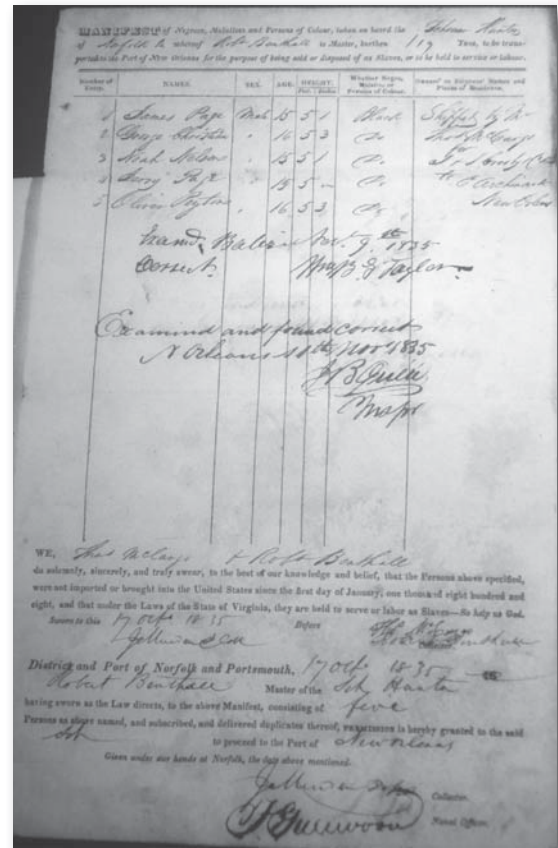 MANIFEST of Negroes, Mulattoes and Persons of Colour, taken on board the Schooner Hunter
of Norfolk Va whereof Robt Benthall is Master, burthen 119 Tons, to be trans-
ported to the Port of New Orleans for the purpose of being sold or disposed of as Slaves, or to be held to service or labour.
Number of Entry. NAMES. SEX. AGE. HEIGHT. Feet. Inches. Whether Negro, Mulatto, or Persons of Colour. Owners' or Shippers' Names and Places of Residence.
1 James Page Male 15 5 1 Black Shipped by Mr
2 George 16 5 3 Do Thos McCargo
3 Noah Nelson 15 5 1 Do
4 Page 15 5 Do to
5 Oliver 16 5 3 Do New Orleans
Examd. Balize Nov. 9th 1835
Correct. B. G Taylor
Examined and found correct
N Orleans 11th Novr 1835
Inspr
WE, Thos McCargo & Robt Benthall
do solemnly, sincerely, and truly swear, to the best of our knowledge and belief, that the Persons above specified,
were not imported or brought into the United States since the first day of January, one thousand eight hundred and
eight, and that under the Laws of the State of Virginia, they are held to serve or labor as Slaves—So help us God.
Sworn to this 17 Octo 1835 Before Thos McCargo
Robert Benthall
District and Port of Norfolk and Portsmouth, 17 Octo 1835
Robert Benthall Master of the Sch Hunter
having sworn as the Law directs, to the above Manifest, consisting of five
Persons as above named, and subscribed, and delivered duplicates thereof, permission is hereby granted to the said
Sch to proceed to the Port of New Orleans
Given under our hands at Norfolk, the day above mentioned.
Collector.
Naval Officer.